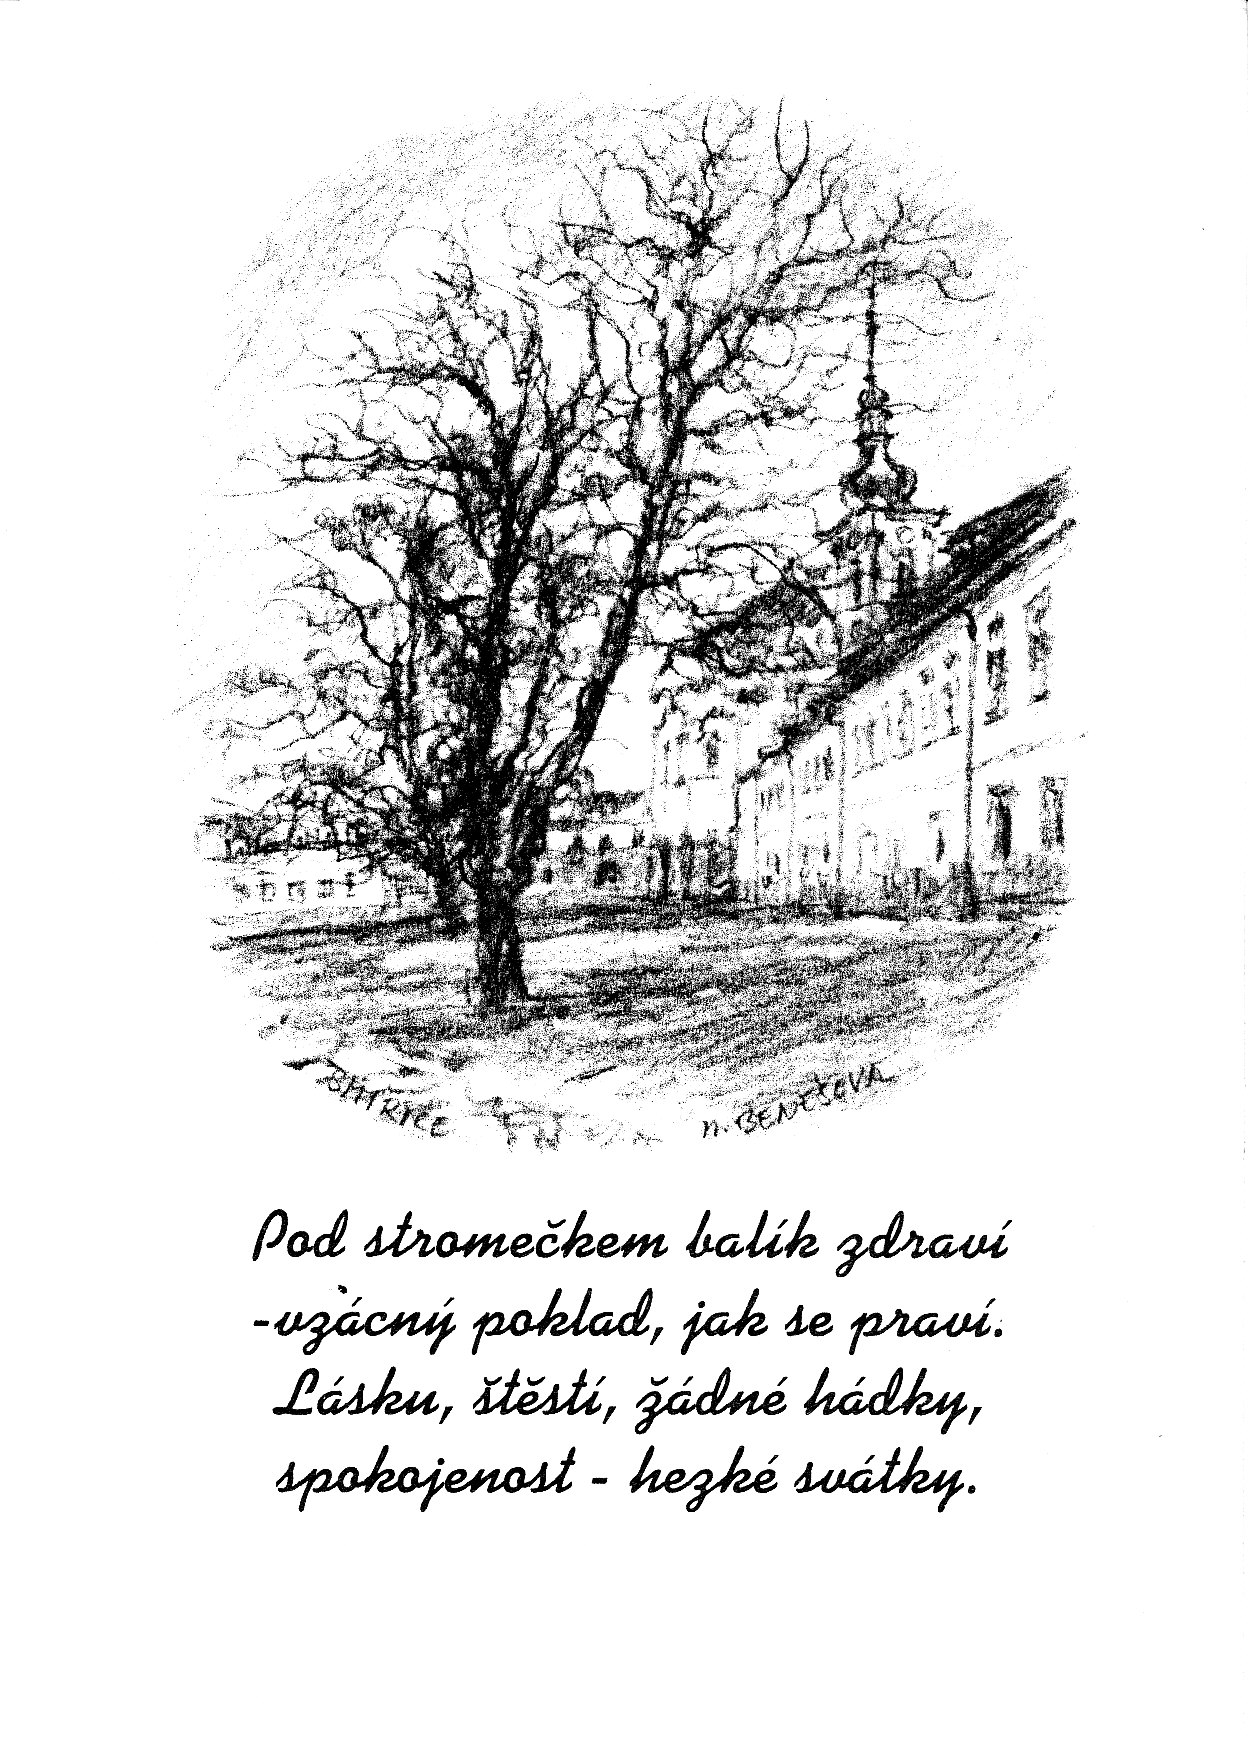 BYSTŘICE n. BENEŠOVA
Pod stromečkem balík zdraví
-vzácný poklad, jak se praví.
Lásku, štěstí, žádné hádky,
spokojenost - hezké svátky.